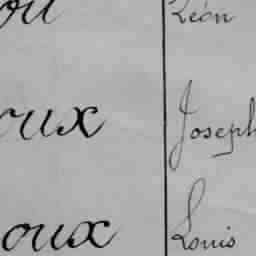 ou Léon
oux Joseph
oux Louis